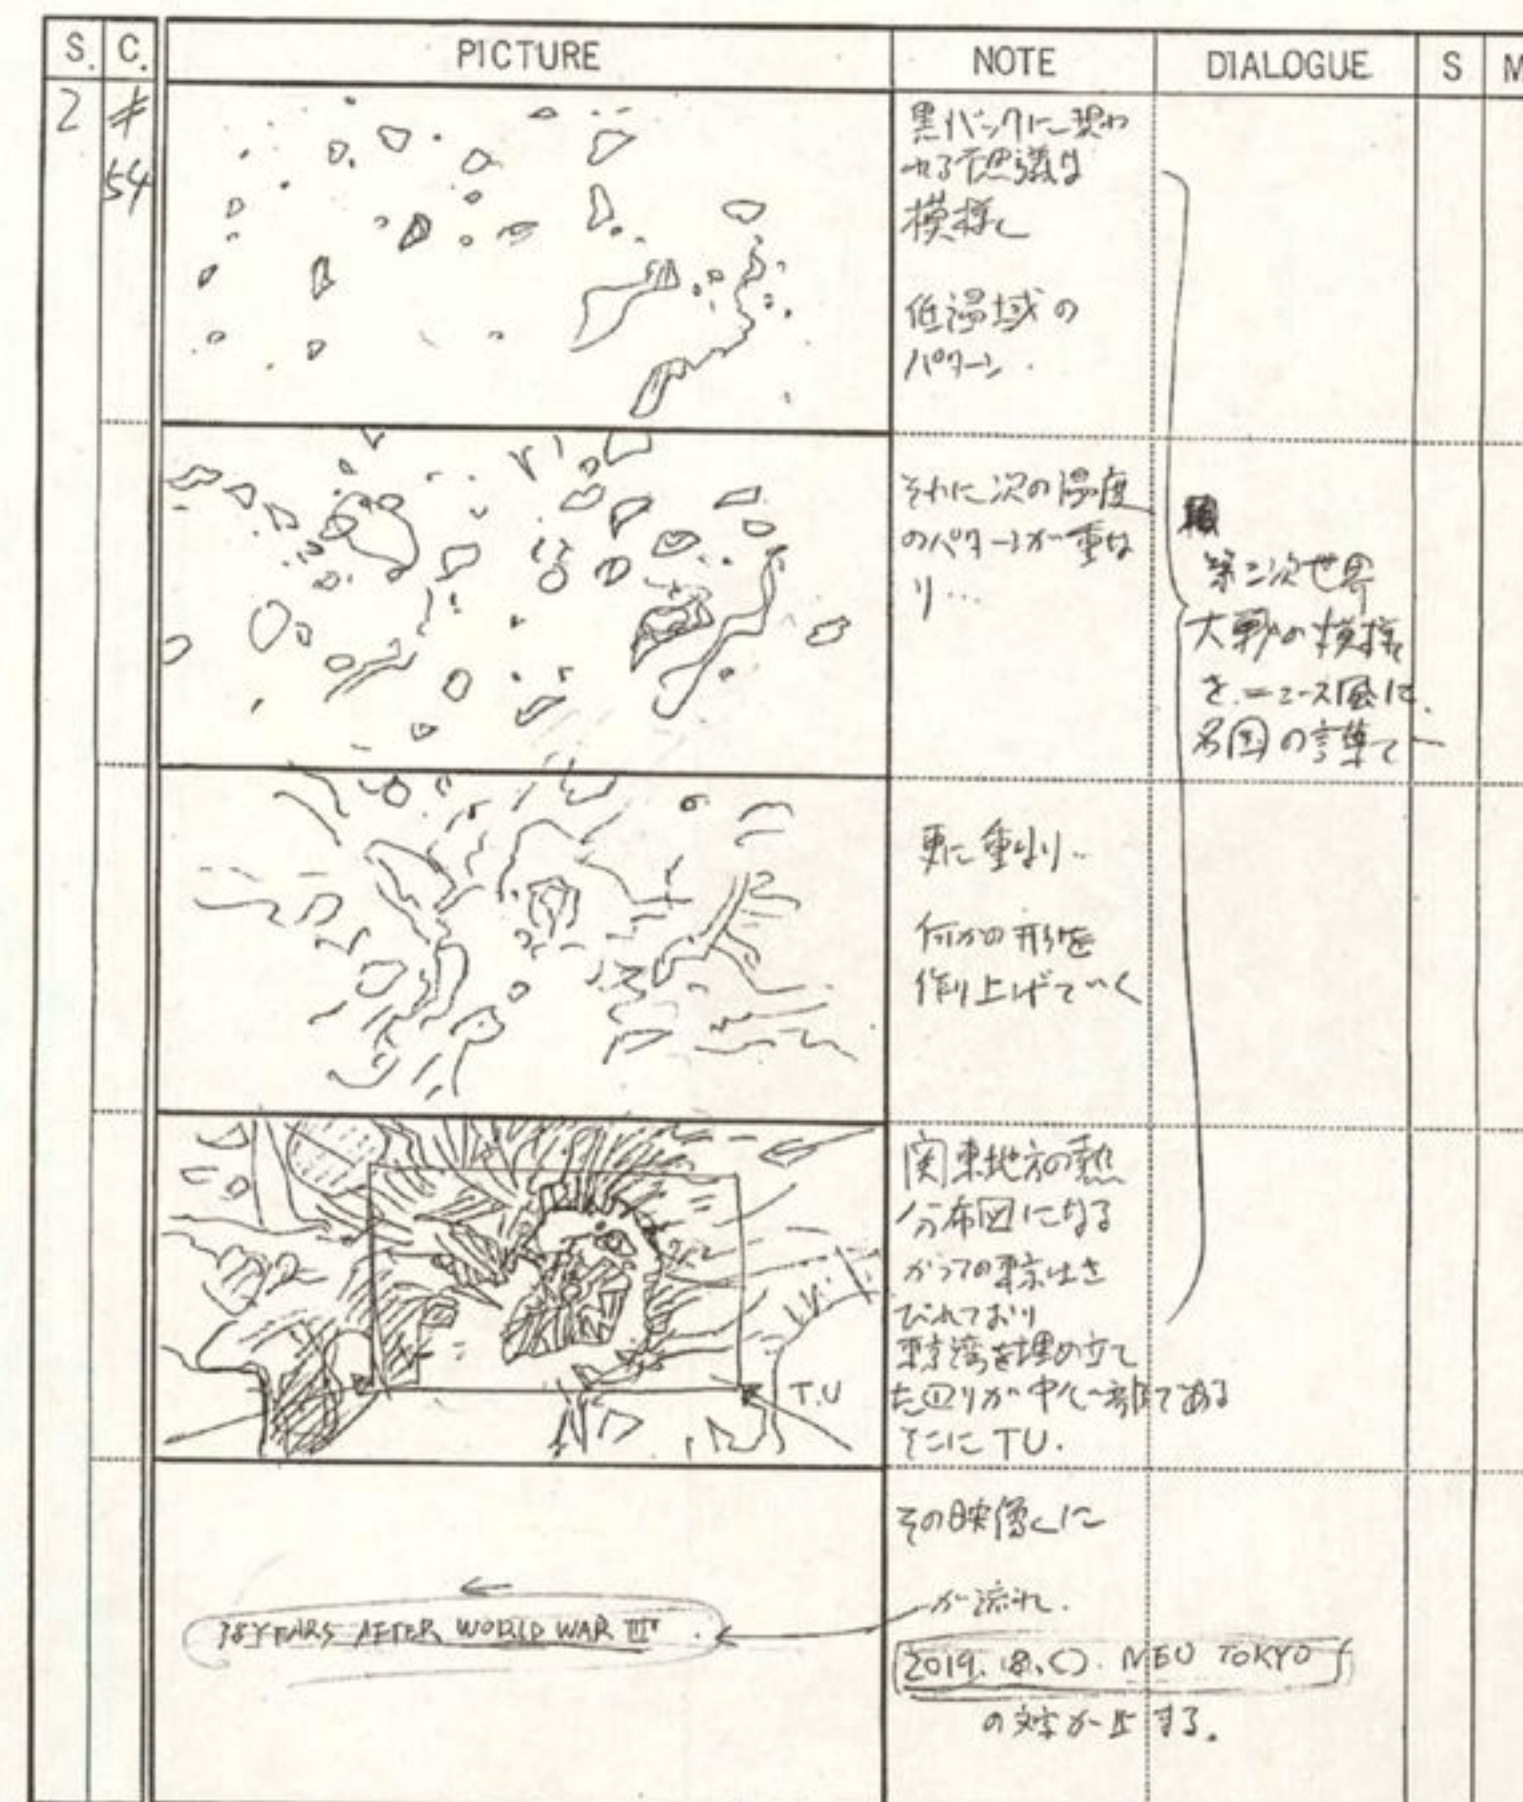 S. C. PICTURE NOTE DIALOGUE S M
2
54
黒バックに現わ
れる不思議な
模様
低温域の
パターン.
それに次の温度
のパターンが重な
り…
第三次世界
大戦の模様
を、ニュース風に、
各国の言葉で
更に重なり…
何かの形を
作り上げていく
T.U
関東地方の熱
分布図になる
かつての東京はさ
びれており
東京湾を埋め立て
た回りが中心部である
そこに TU.
その映像に
が流れ.
38 YEARS AFTER WORLD WAR III
2019. NEO TOKYO
の文字が する。